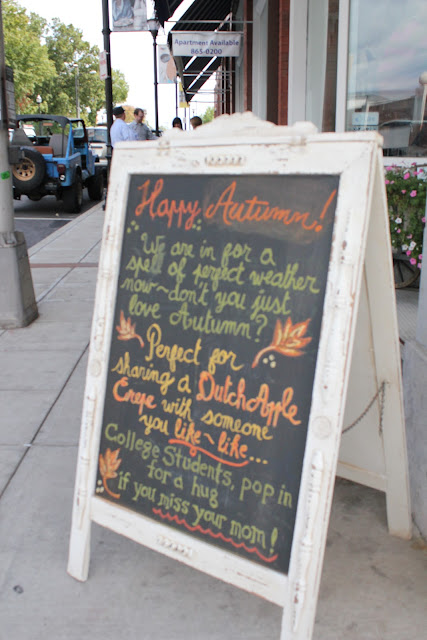 Apartment Available
865-0200
Happy Autumn!
We are in for a
spell of perfect weather
now~don't you just
love Autumn?
Perfect for
sharing a Dutch Apple
Crepe with someone
you like~like...
College Students, pop in
for a hug
if you miss your mom!